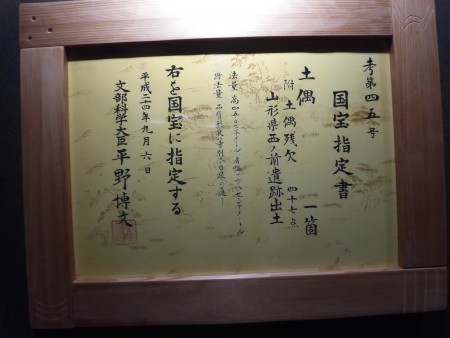 考第四五号
国宝指定書
土偶 一箇
附 土偶残欠 四十七点
山形県西ノ前遺跡出土
法量 高四五・〇センチメートル
右を国宝に指定する
平成二十四年九月六日
文部科学大臣 平野博文